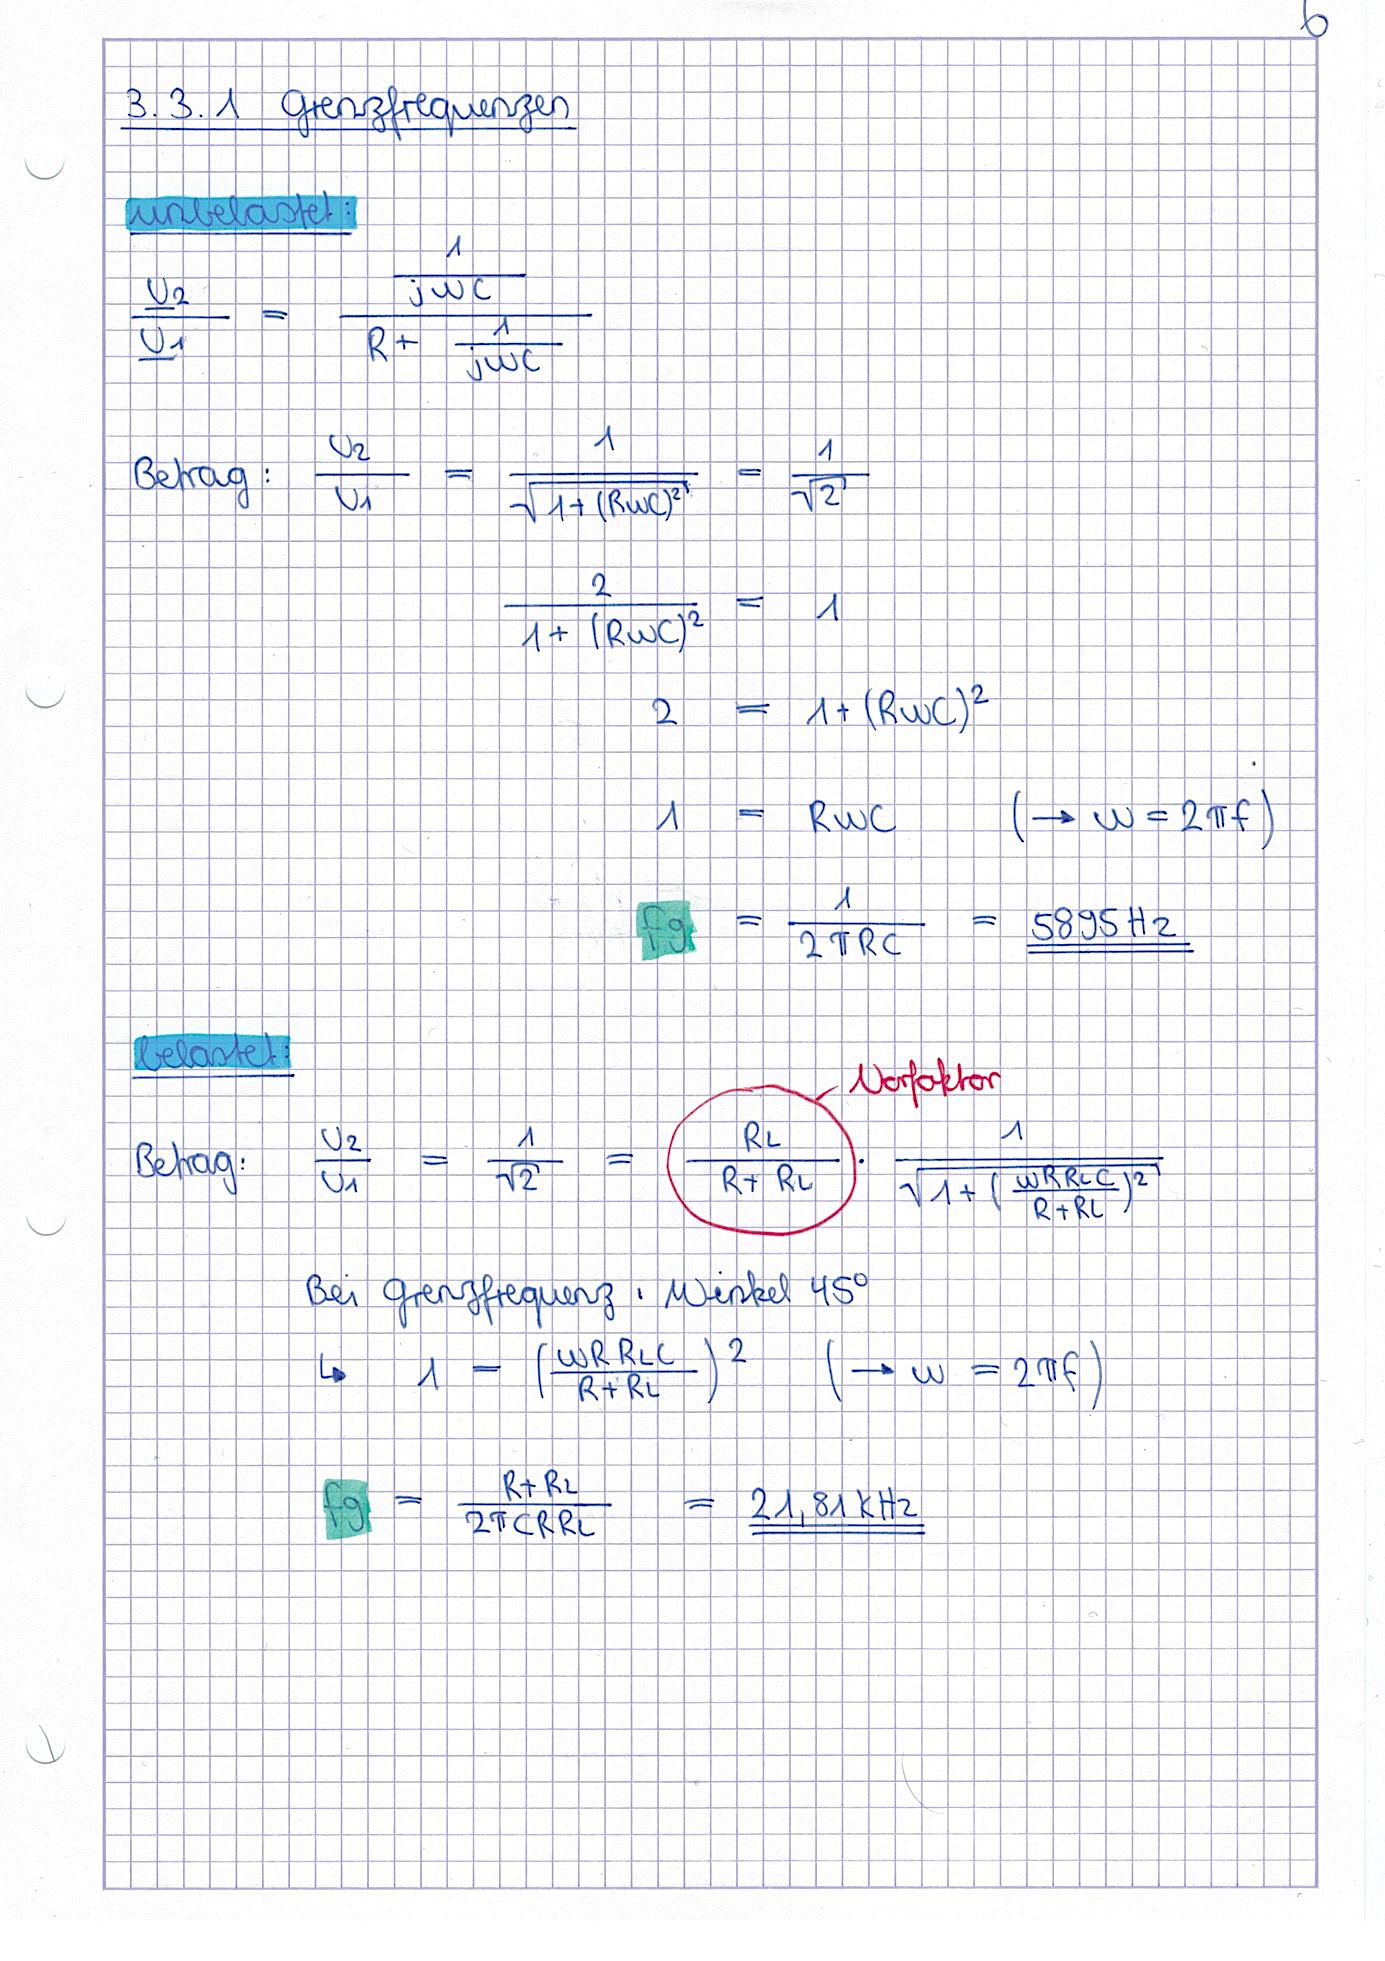 6
3.3.1 Grenzfrequenzen
unbelastet:
U2/U1 = (1/(jωC)) / (R + 1/(jωC))
Betrag: U2/U1 = 1/√(1+(RωC)²) = 1/√2
2/(1+(RωC)²) = 1
2 = 1+(RωC)²
1 = RωC (→ ω = 2πf)
fg = 1/(2πRC) = 5895Hz
belastet:
Vorfaktor
Betrag: U2/U1 = 1/√2 = RL/(R+RL) · 1/√(1+(ωRRLC/(R+RL))²)
Bei Grenzfrequenz: Winkel 45°
↳ 1 = (ωRRLC/(R+RL))² (→ ω = 2πf)
fg = (R+RL)/(2πCRRL) = 21,81kHz